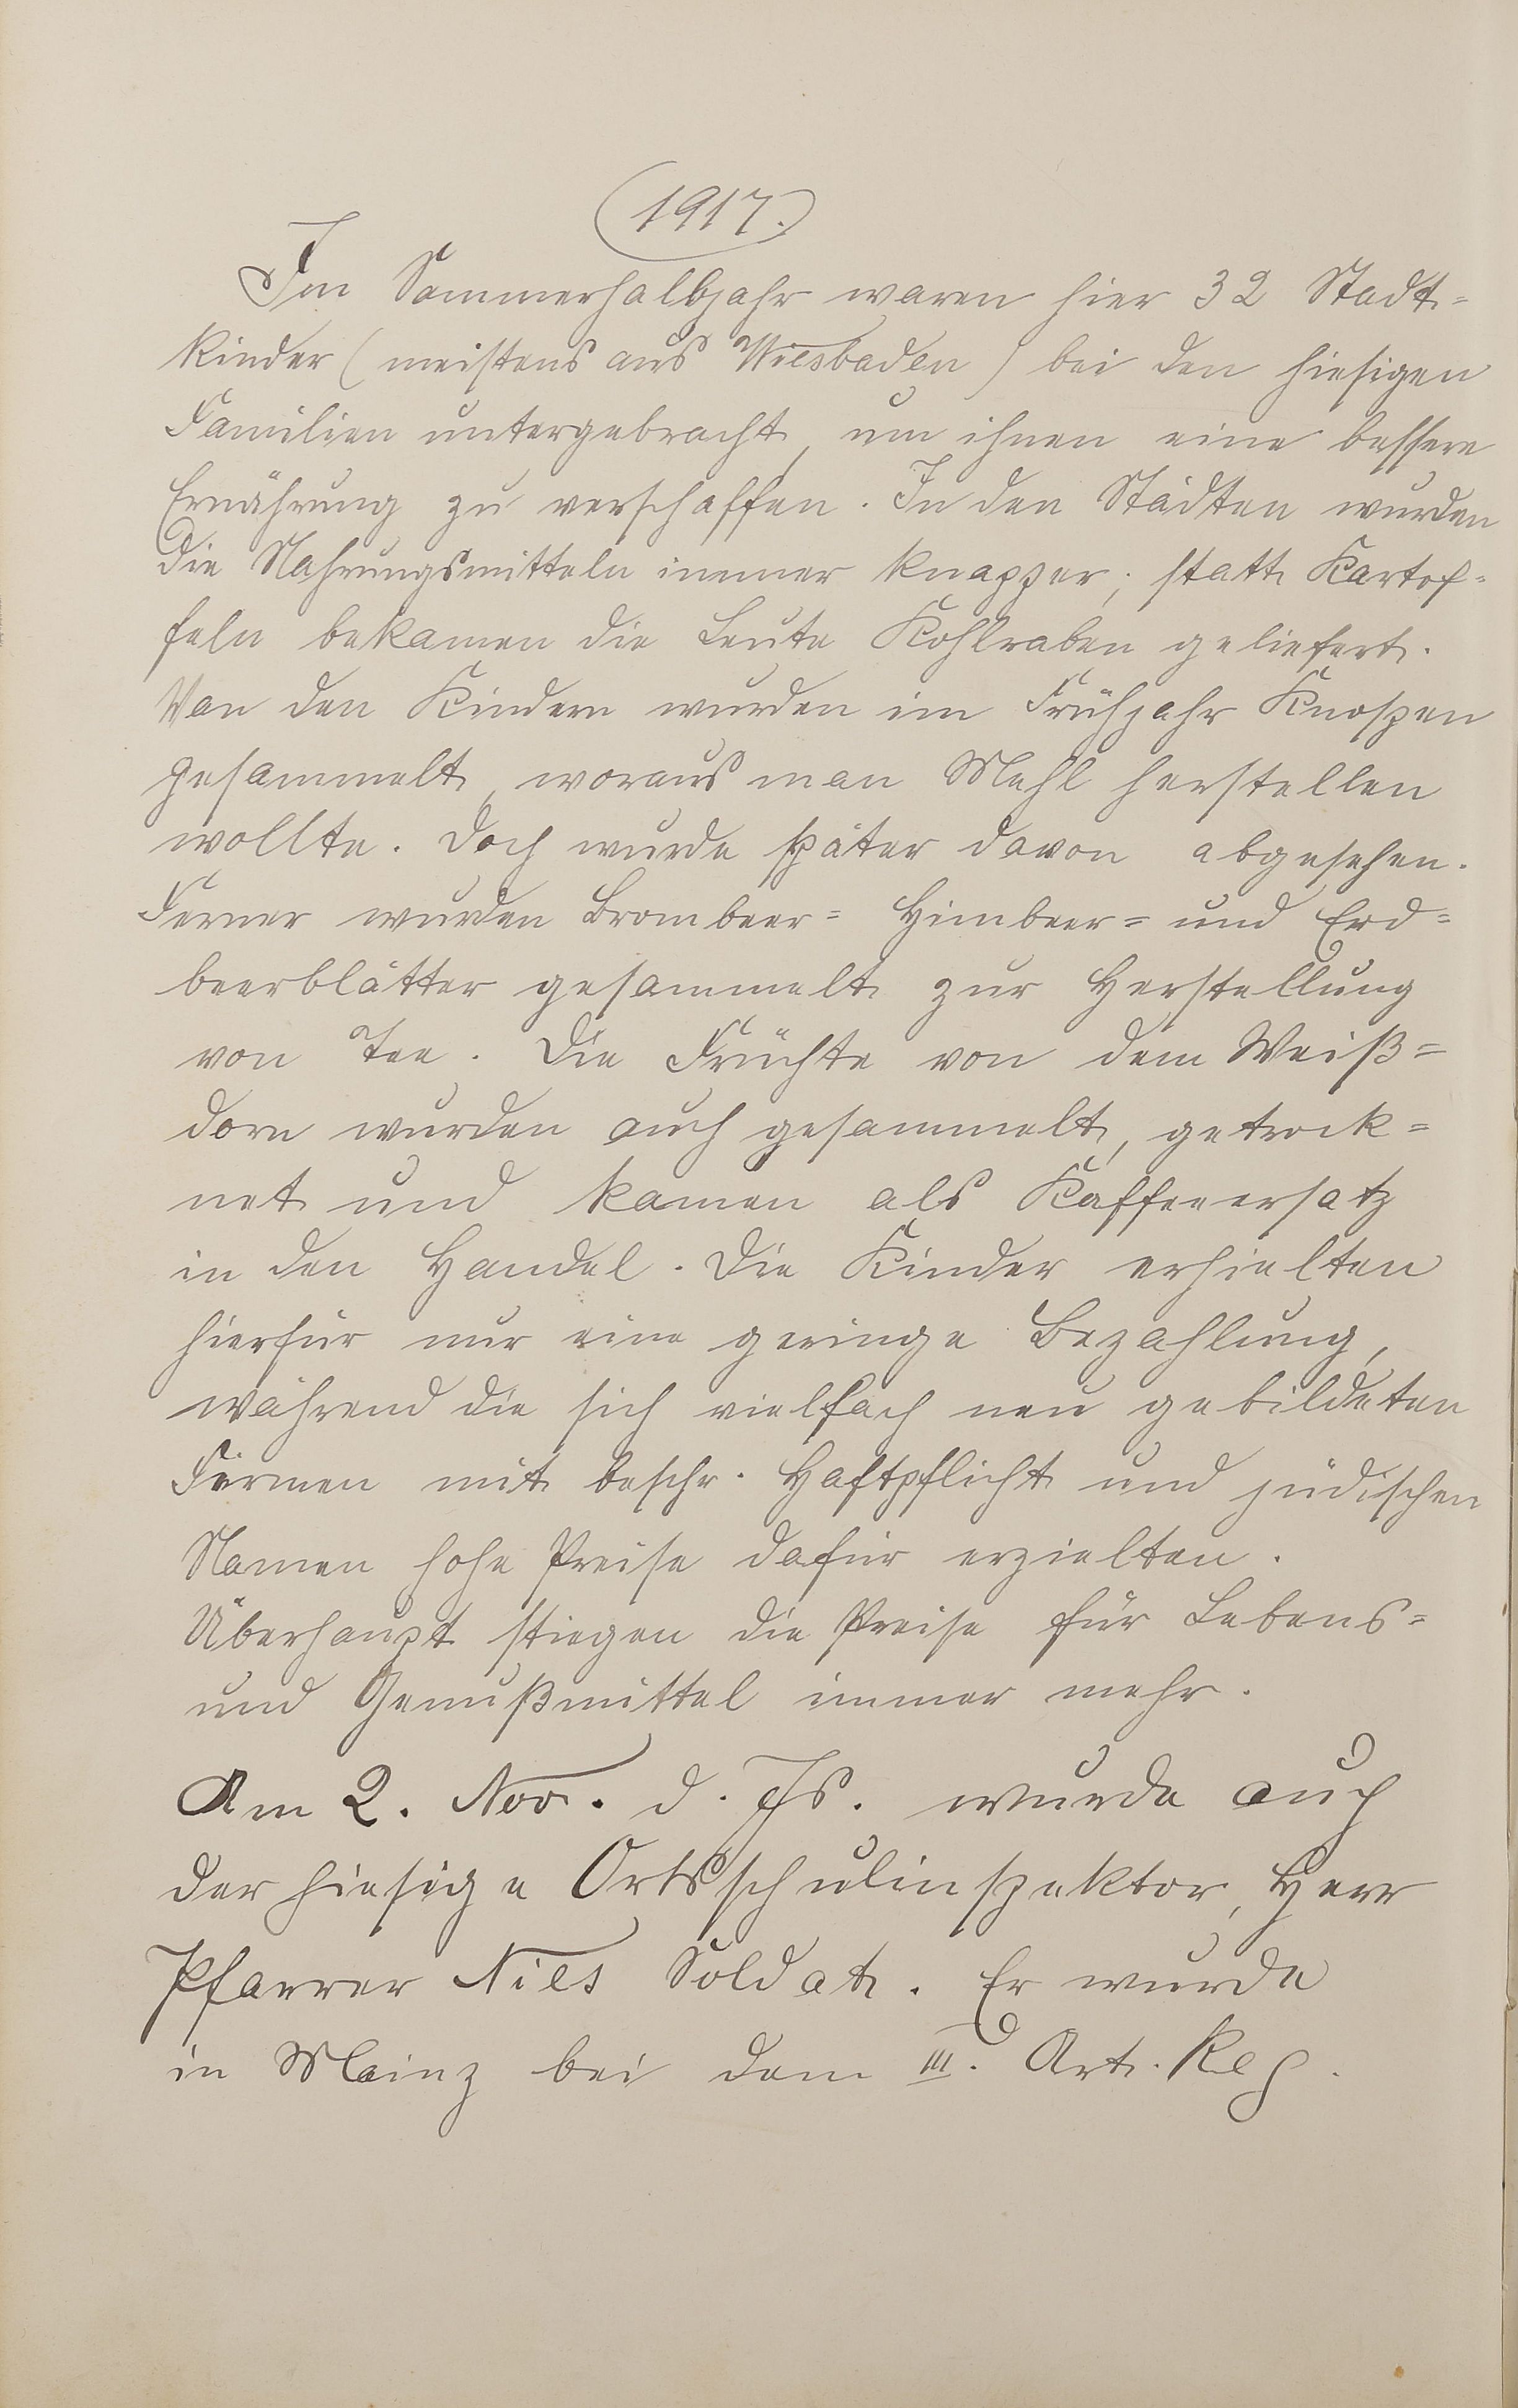 (1917.)
Im Sommerhalbjahr waren hier 32 Stadt=
kinder (meistens aus Wiesbaden) bei den hiesigen
Familien untergebracht, um ihnen eine bessere
Ernährung zu verschaffen. In den Städten wurden
die Nahrungsmitteln immer knapper; statt Kartof=
feln bekamen die Leute Kohlraben geliefert.
Von den Kindern wurden im Frühjahr Knospen
gesammelt, woraus man Mehl herstellen
wollte. Doch wurde später davon abgesehen.
Ferner wurden Brombeer= Himbeer= und Erd=
beerblätter gesammelt zur Herstellung
von Tee. Die Früchte von dem Weiß=
dorn wurden auch gesammelt, getrock=
net und kamen als Kaffeeersatz
in den Handel. Die Kinder erhielten
hierfür nur eine geringe Bezahlung,
während die sich vielfach neu gebildeten
Firmen mit beschr. Haftpflicht und jüdischen
Namen hohe Preise dafür erzielten.
Überhaupt stiegen die Preise für Lebens=
und Genußmittel immer mehr.
Am 2. Nov. d. Js. wurde auch
der hiesige Ortsschulinspektor, Herr
Pfarrer Nies Soldat. Er wurde
in Mainz bei dem III. Art. Reg.